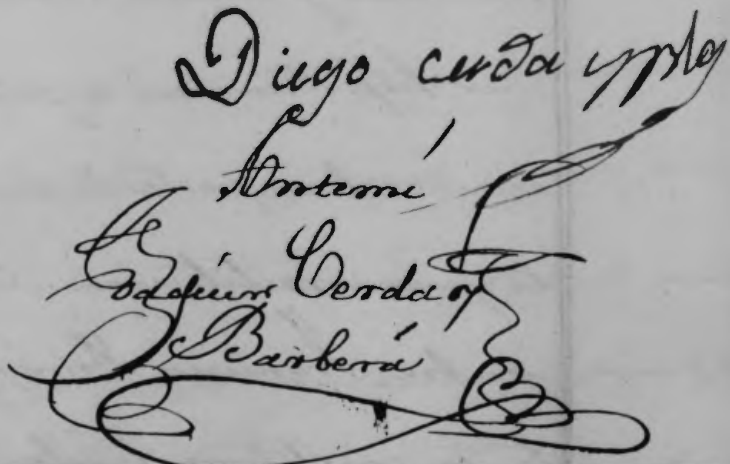 Diego cerda y pla
Antemí
Joaquin Cerda y
Barberá